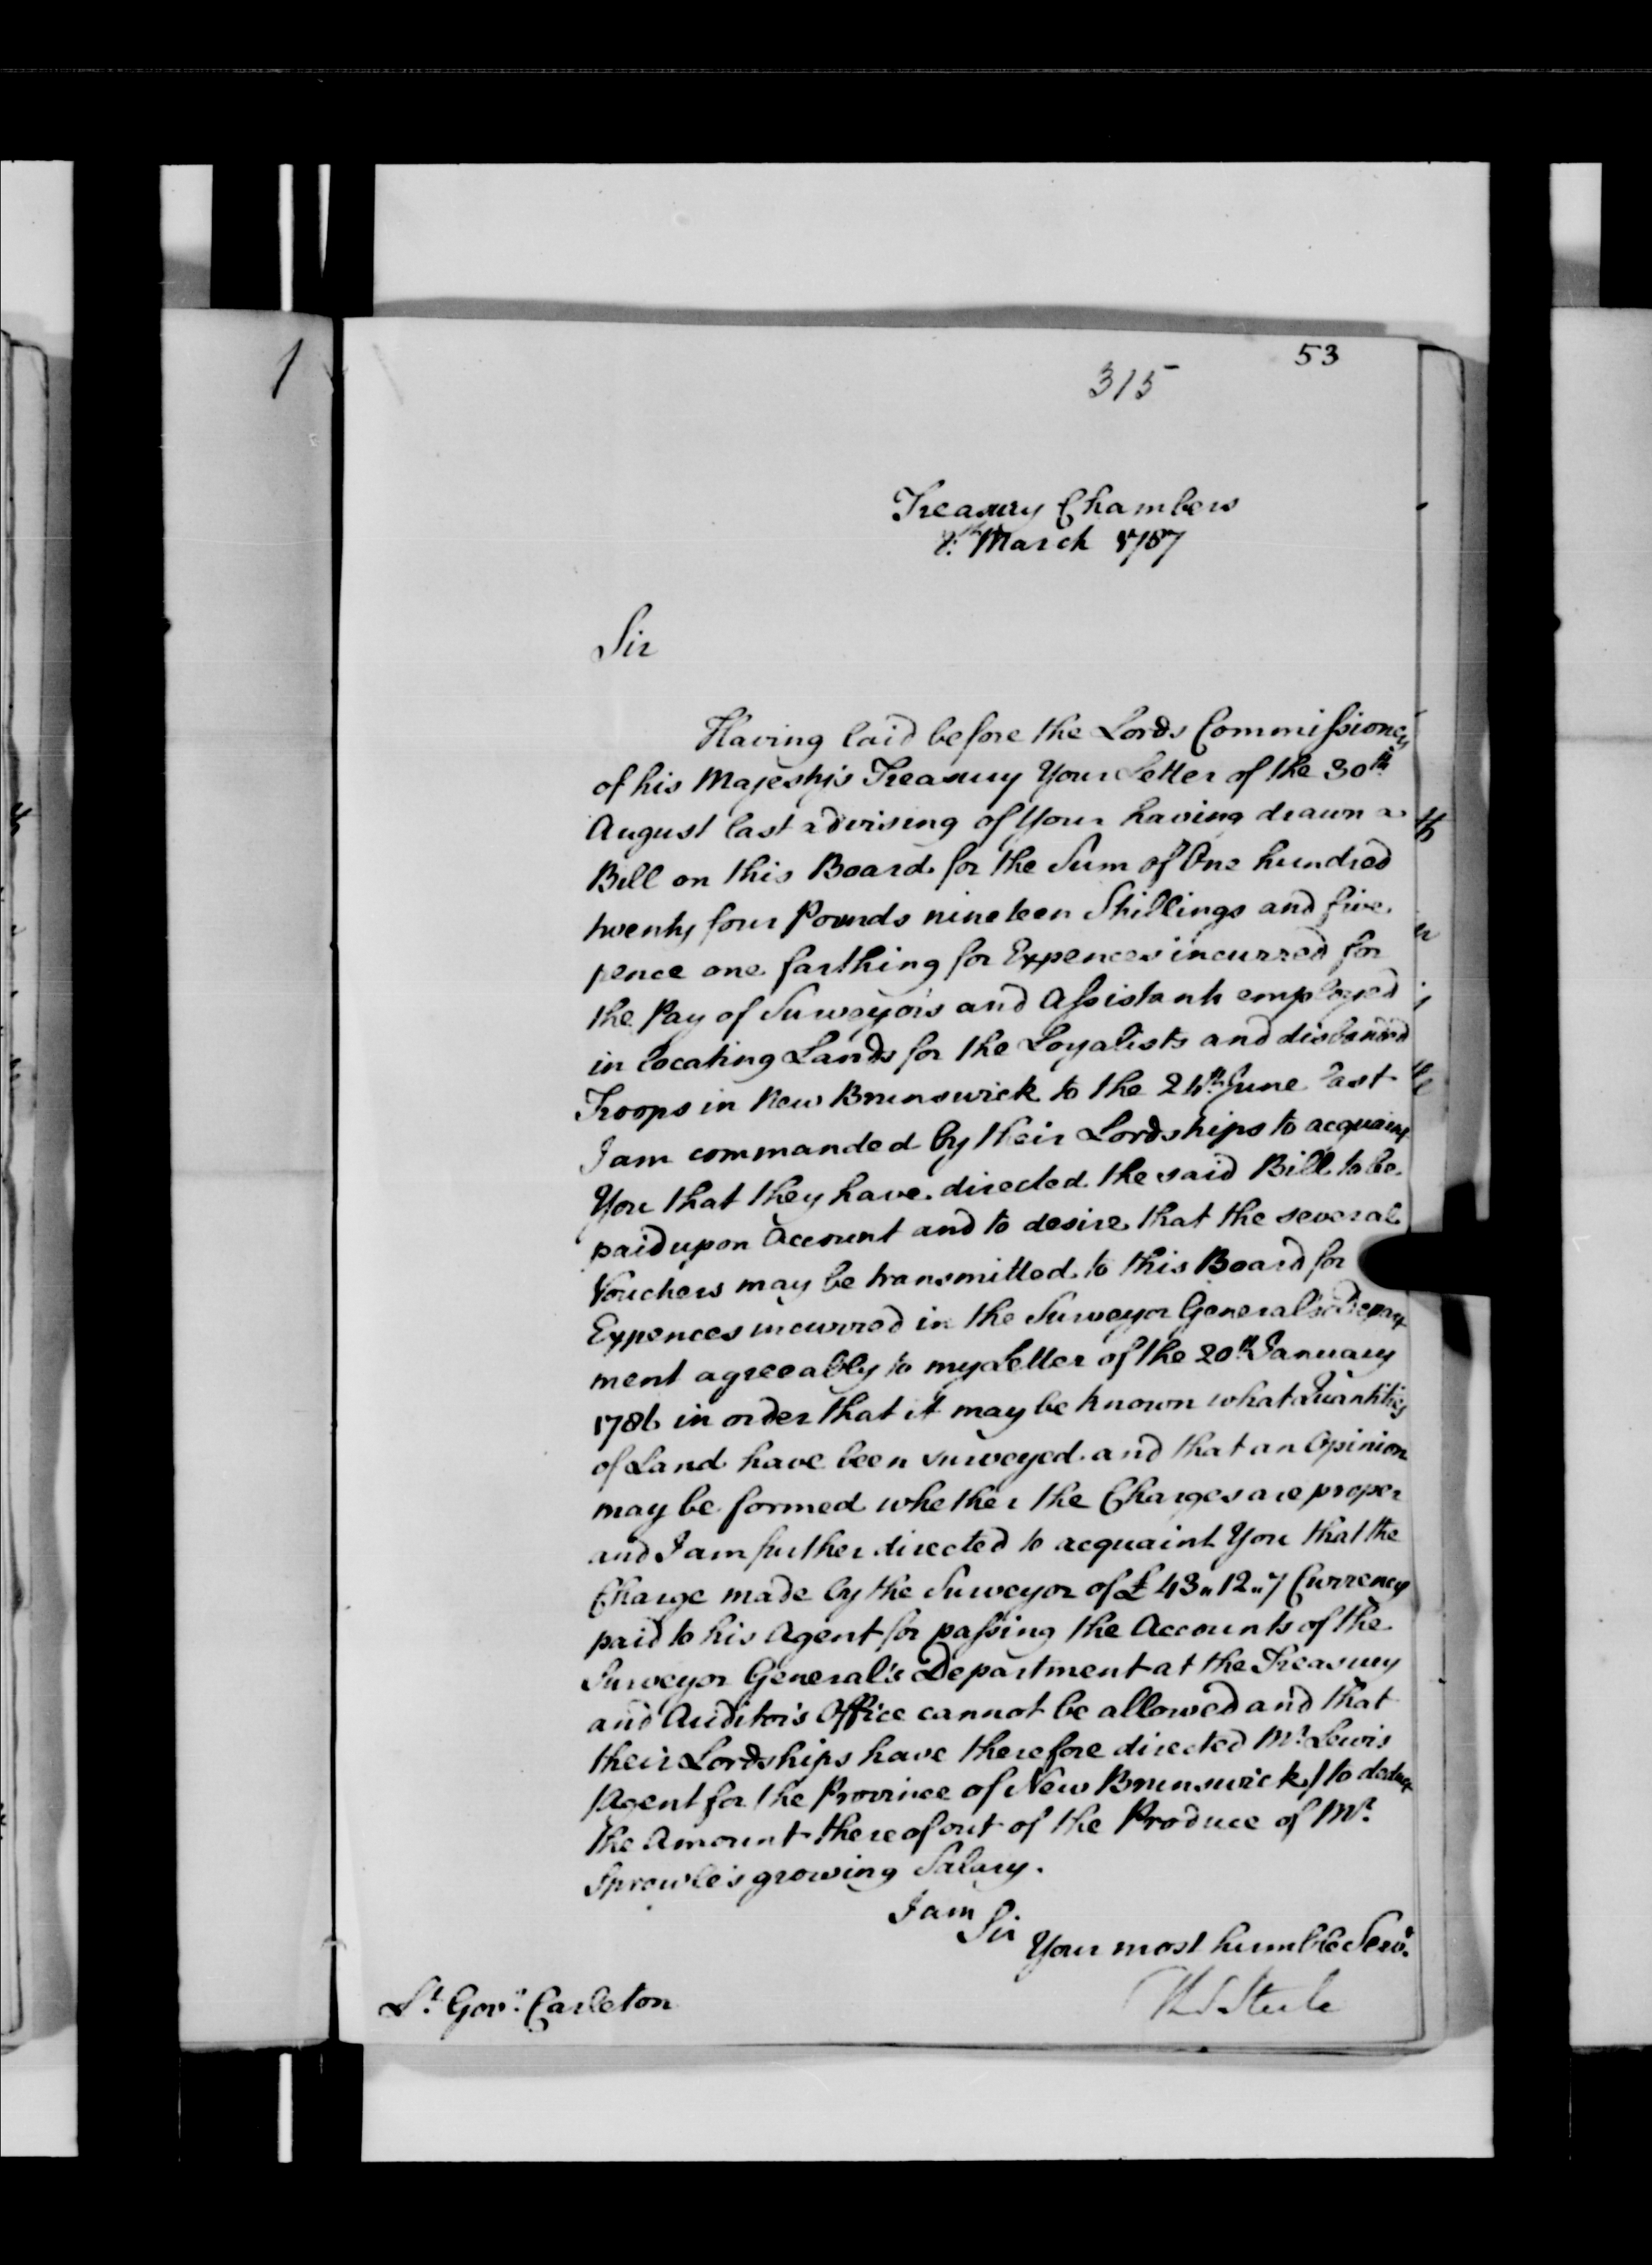 53
315
Treasury Chambers
8th March 1787
Sir
Having laid before the Lords Commissioners
of his Majesty's Treasury Your Letter of the 30th
August last advising of Your having drawn a
Bill on this Board for the Sum of One hundred
twenty four Pounds nineteen Shillings and five
pence one farthing for Expences incurred for
the Pay of Surveyors and Assistants employed
in locating Lands for the Loyalists and disbanded
Troops in New Brunswick to the 24th June last
I am commanded by their Lordships to acquaint
You that they have directed the said Bill to be
paid upon Account and to desire that the several
Vouchers may be transmitted to this Board for
Expences incurred in the Surveyor General's Depart
ment agreeably to my Letter of the 20th January
1786 in order that it may be known what Quantities
of Land have been surveyed and that an Opinion
may be formed whether the Charges are proper
and I am further directed to acquaint You that the
Charge made by the Surveyor of £43„12„7 Currency
paid to his Agent for passing the Accounts of the
Surveyor General's Department at the Treasury
and Auditor's Office cannot be allowed and that
their Lordships have therefore directed Mr Lewis
Agent for the Province of New Brunswick) to deduct
the Amount thereof out of the Produce of Mr
Sprowle's growing Salary.
I am
Sir
Your most humble Servt
Thos Steele
Lt Govr Carleton